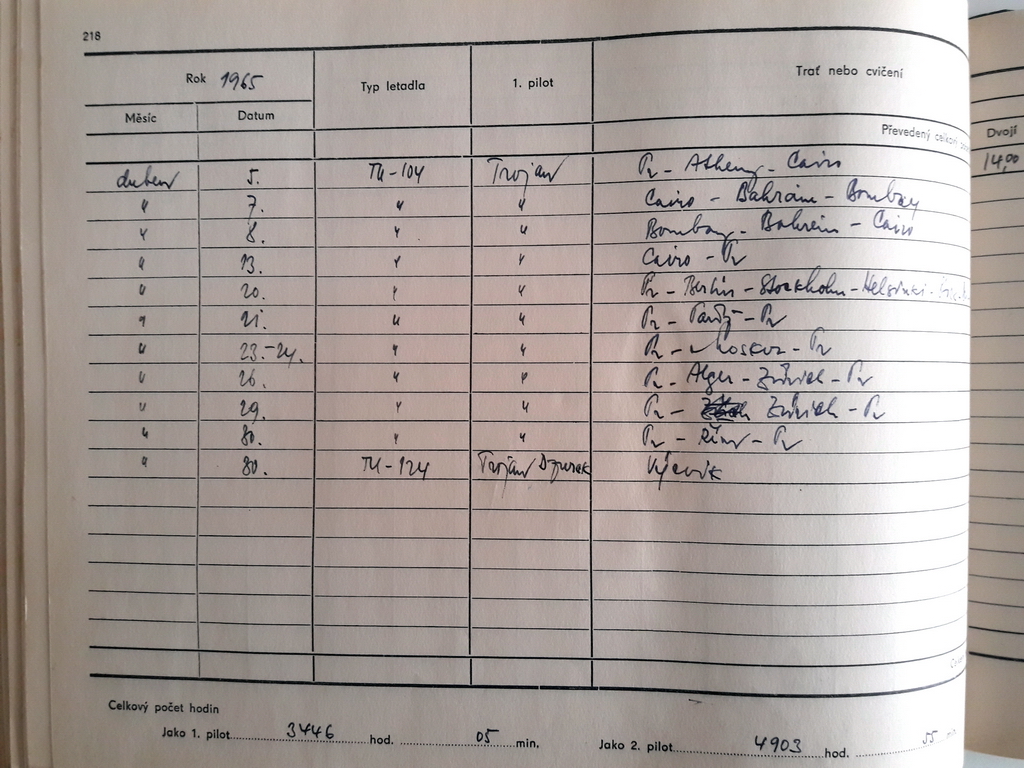 218
Rok 1965 Typ letadla 1. pilot Trať nebo cvičení
Měsíc Datum
Převedený celkový
Dvojí
14,00
duben 5. TU-104 Trojan Pr - Atheny - Cairo
" 7. " " Cairo - Bahrain - Bombay
" 8. " " Bombay - Bahrein - Cairo
" 13. " " Cairo - Pr
" 20. " " Pr - Berlin - Stockholm - Helsinki -
" 21. " " Pr - Paříž - Pr
" 23.-24. " " Pr - Moskva - Pr
" 26. " " Pr - Alger - Zürich - Pr
" 29. " " Pr - Zürich - Pr
" 30. " " Pr - Řím - Pr
" 30. TU-124 Trojan Výcvik
Celkový počet hodin
Jako 1. pilot 3446 hod. 05 min. Jako 2. pilot 4903 hod. 55 min